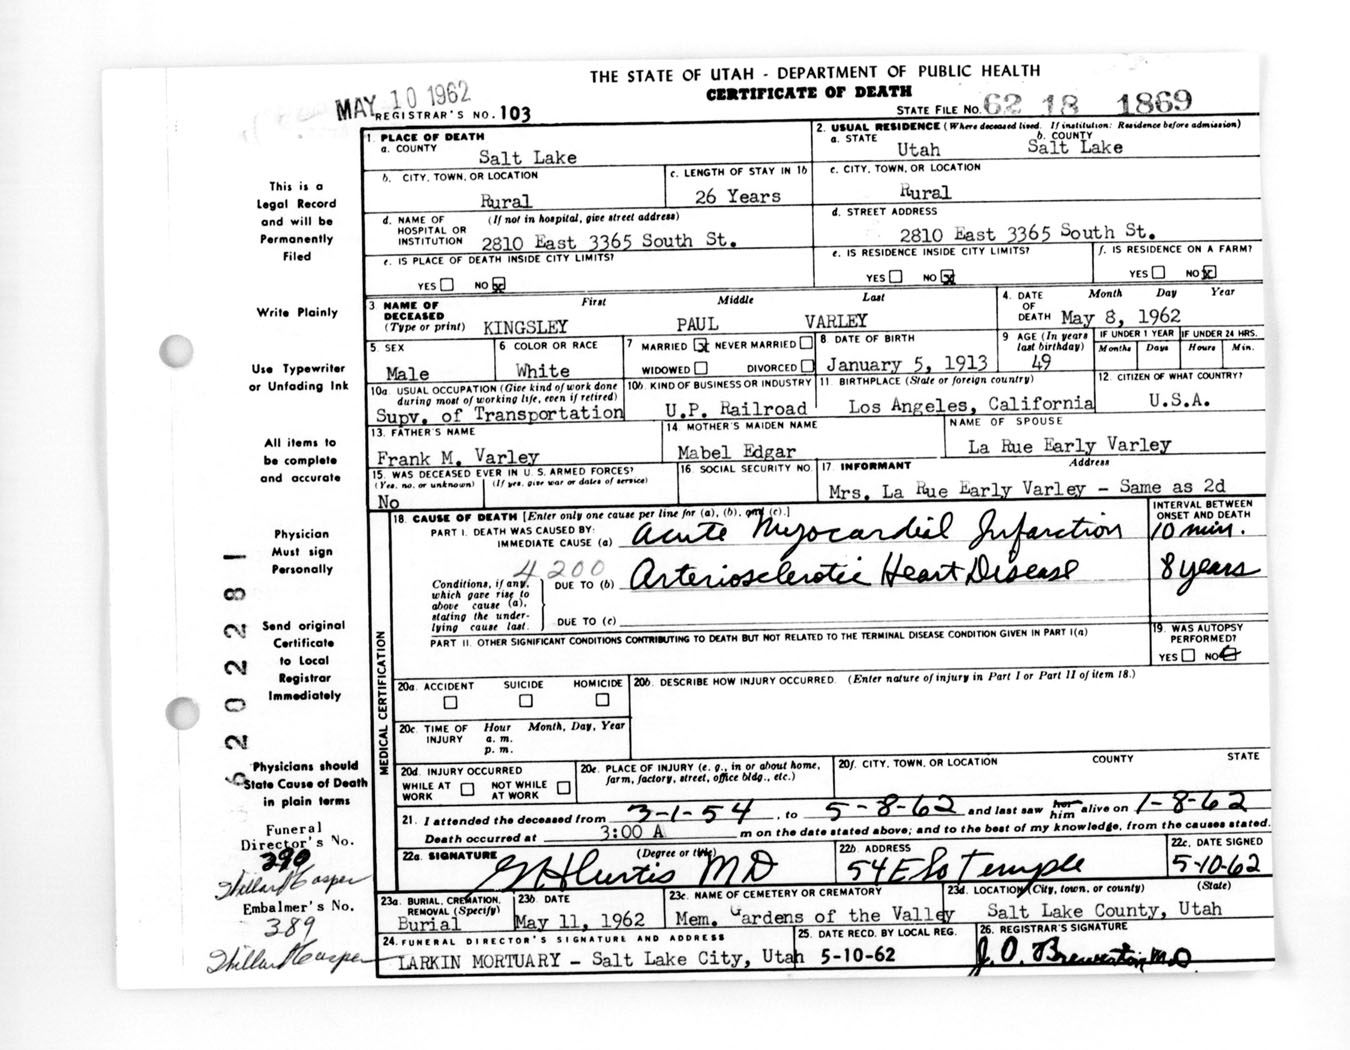 THE STATE OF UTAH - DEPARTMENT OF PUBLIC HEALTH
CERTIFICATE OF DEATH
MAY 10 1962
REGISTRAR'S NO. 103
STATE FILE NO. 62 18 1869
This is a
Legal Record
and will be
Permanently
Filed
Write Plainly
Use Typewriter
or Unfading Ink
All items to
be complete
and accurate
Physician
Must sign
Personally
Send original
Certificate
to Local
Registrar
Immediately
Physicians should
State Cause of Death
in plain terms
Funeral
Director's No.
290
Willard Casper
Embalmer's No.
389
Willard Casper
1. PLACE OF DEATH
a. COUNTY
Salt Lake
2. USUAL RESIDENCE (Where deceased lived. If institution: Residence before admission)
a. STATE b. COUNTY
Utah Salt Lake
b. CITY, TOWN, OR LOCATION
Rural
c. LENGTH OF STAY IN 1b
26 Years
c. CITY, TOWN, OR LOCATION
Rural
d. NAME OF (If not in hospital, give street address)
HOSPITAL OR
INSTITUTION 2810 East 3365 South St.
d. STREET ADDRESS
2810 East 3365 South St.
e. IS PLACE OF DEATH INSIDE CITY LIMITS?
YES NO x
e. IS RESIDENCE INSIDE CITY LIMITS?
YES NO x
f. IS RESIDENCE ON A FARM?
YES NO x
3 NAME OF DECEASED (Type or print) First Middle Last
KINGSLEY PAUL VARLEY
4. DATE OF DEATH Month Day Year
May 8, 1962
5. SEX
Male
6 COLOR OR RACE
White
7 MARRIED x NEVER MARRIED
WIDOWED DIVORCED
8 DATE OF BIRTH
January 5, 1913
9 AGE (In years last birthday)
49
IF UNDER 1 YEAR
Months Days
IF UNDER 24 HRS.
Hours Min.
10a. USUAL OCCUPATION (Give kind of work done during most of working life, even if retired)
Supv. of Transportation
10b. KIND OF BUSINESS OR INDUSTRY
U.P. Railroad
11. BIRTHPLACE (State or foreign country)
Los Angeles, California
12. CITIZEN OF WHAT COUNTRY?
U.S.A.
13. FATHER'S NAME
Frank M. Varley
14. MOTHER'S MAIDEN NAME
Mabel Edgar
NAME OF SPOUSE
La Rue Early Varley
15. WAS DECEASED EVER IN U.S. ARMED FORCES?
(Yes, no, or unknown) (If yes, give war or dates of service)
No
16 SOCIAL SECURITY NO.
17. INFORMANT Address
Mrs. La Rue Early Varley - Same as 2d
MEDICAL CERTIFICATION
18. CAUSE OF DEATH [Enter only one cause per line for (a), (b), and (c).]
PART I. DEATH WAS CAUSED BY:
IMMEDIATE CAUSE (a) Acute Myocardial Infarction
INTERVAL BETWEEN ONSET AND DEATH
10 min.
4200
Conditions, if any, which gave rise to above cause (a), stating the underlying cause last.
DUE TO (b) Arteriosclerotic Heart Disease
8 years
DUE TO (c)
PART II. OTHER SIGNIFICANT CONDITIONS CONTRIBUTING TO DEATH BUT NOT RELATED TO THE TERMINAL DISEASE CONDITION GIVEN IN PART I(a)
19. WAS AUTOPSY PERFORMED?
YES NO
20a. ACCIDENT SUICIDE HOMICIDE
20b. DESCRIBE HOW INJURY OCCURRED. (Enter nature of injury in Part I or Part II of item 18.)
20c. TIME OF INJURY Hour Month, Day, Year
a. m.
p. m.
20d. INJURY OCCURRED
WHILE AT WORK NOT WHILE AT WORK
20e. PLACE OF INJURY (e. g., in or about home, farm, factory, street, office bldg., etc.)
20f. CITY, TOWN, OR LOCATION COUNTY STATE
21. I attended the deceased from 3-1-54, to 5-8-62 and last saw her him alive on 1-8-62
Death occurred at 3:00 A m on the date stated above; and to the best of my knowledge, from the causes stated.
22a. SIGNATURE (Degree or title)
G H Curtis MD
22b. ADDRESS
54 E So Temple
22c. DATE SIGNED
5-10-62
23a. BURIAL, CREMATION, REMOVAL (Specify)
Burial
23b. DATE
May 11, 1962
23c. NAME OF CEMETERY OR CREMATORY
Mem. Gardens of the Valley
23d. LOCATION (City, town, or county) (State)
Salt Lake County, Utah
24. FUNERAL DIRECTOR'S SIGNATURE AND ADDRESS
LARKIN MORTUARY - Salt Lake City, Utah
25. DATE RECD. BY LOCAL REG.
5-10-62
26. REGISTRAR'S SIGNATURE
J. O. Brewerton M.D.